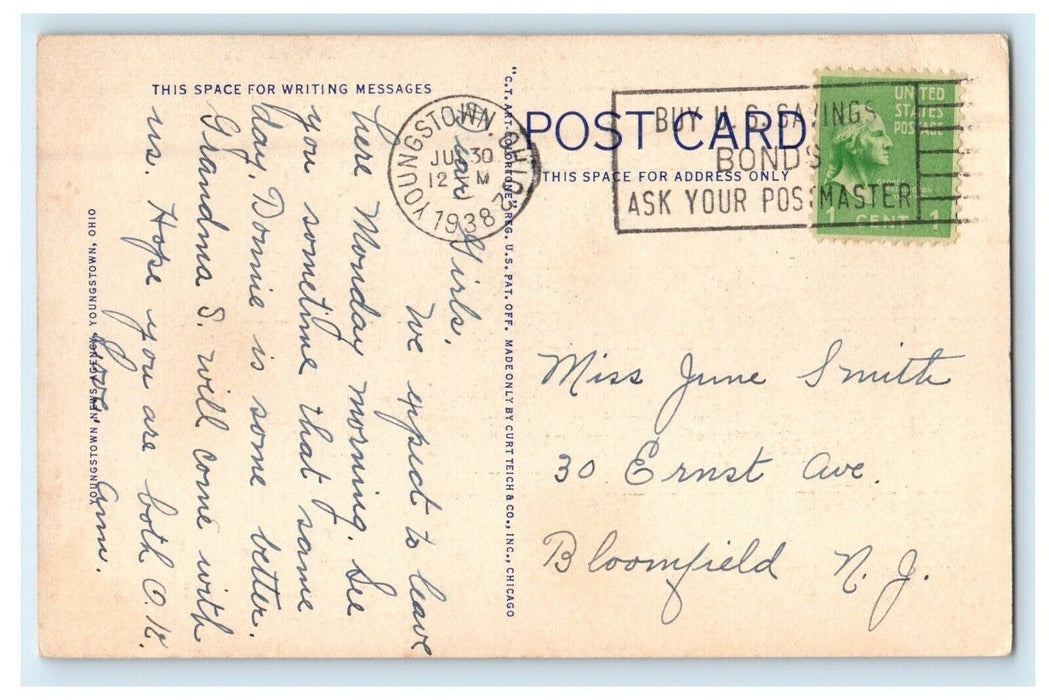 THIS SPACE FOR WRITING MESSAGES
Dear Girls,
We expect to leave
here Monday morning. See
you sometime that same
day. Donnie is some better.
Grandma S. will come with
us. Hope you are both O.K.
Love,
Em.
YOUNGSTOWN NEWS AGENCY, YOUNGSTOWN, OHIO
"C.T. ART-COLORTONE" REG. U.S. PAT. OFF. MADE ONLY BY CURT TEICH & CO., INC., CHICAGO
POST CARD
THIS SPACE FOR ADDRESS ONLY
YOUNGSTOWN, OHIO
30
12 M
1938
BUY U.S. SAVINGS
BONDS
ASK YOUR POSTMASTER
UNITED
STATES
POSTAGE
1 CENT 1
Miss June Smith
30 Ernst Ave.
Bloomfield N. J.